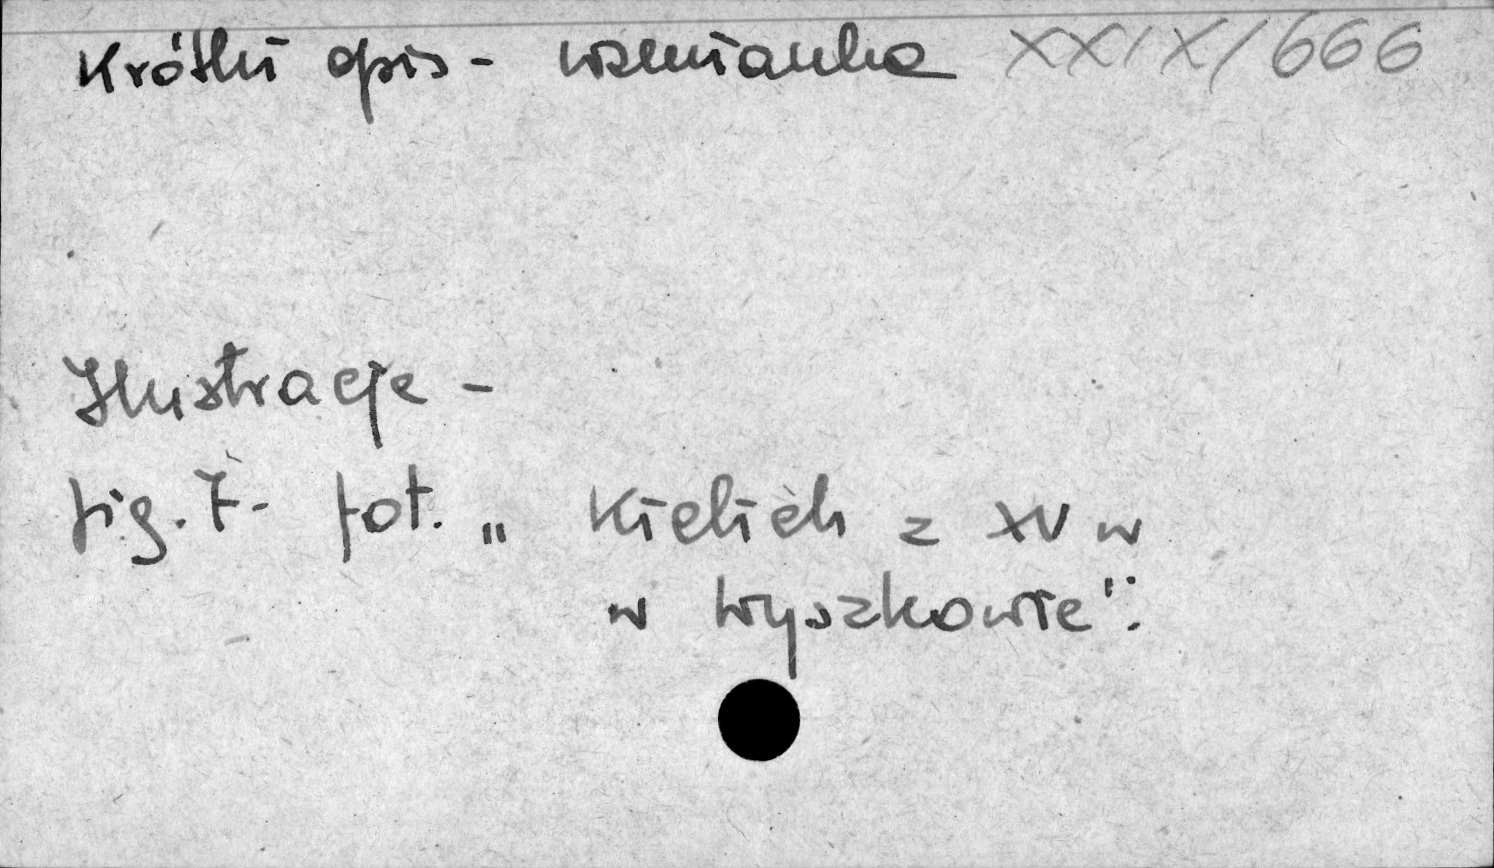 Krótki opis - wzmianka XXIX/666
Ilustracje -
fig. 7- fot. „ Kielich z XV w
w Wyszkowie".